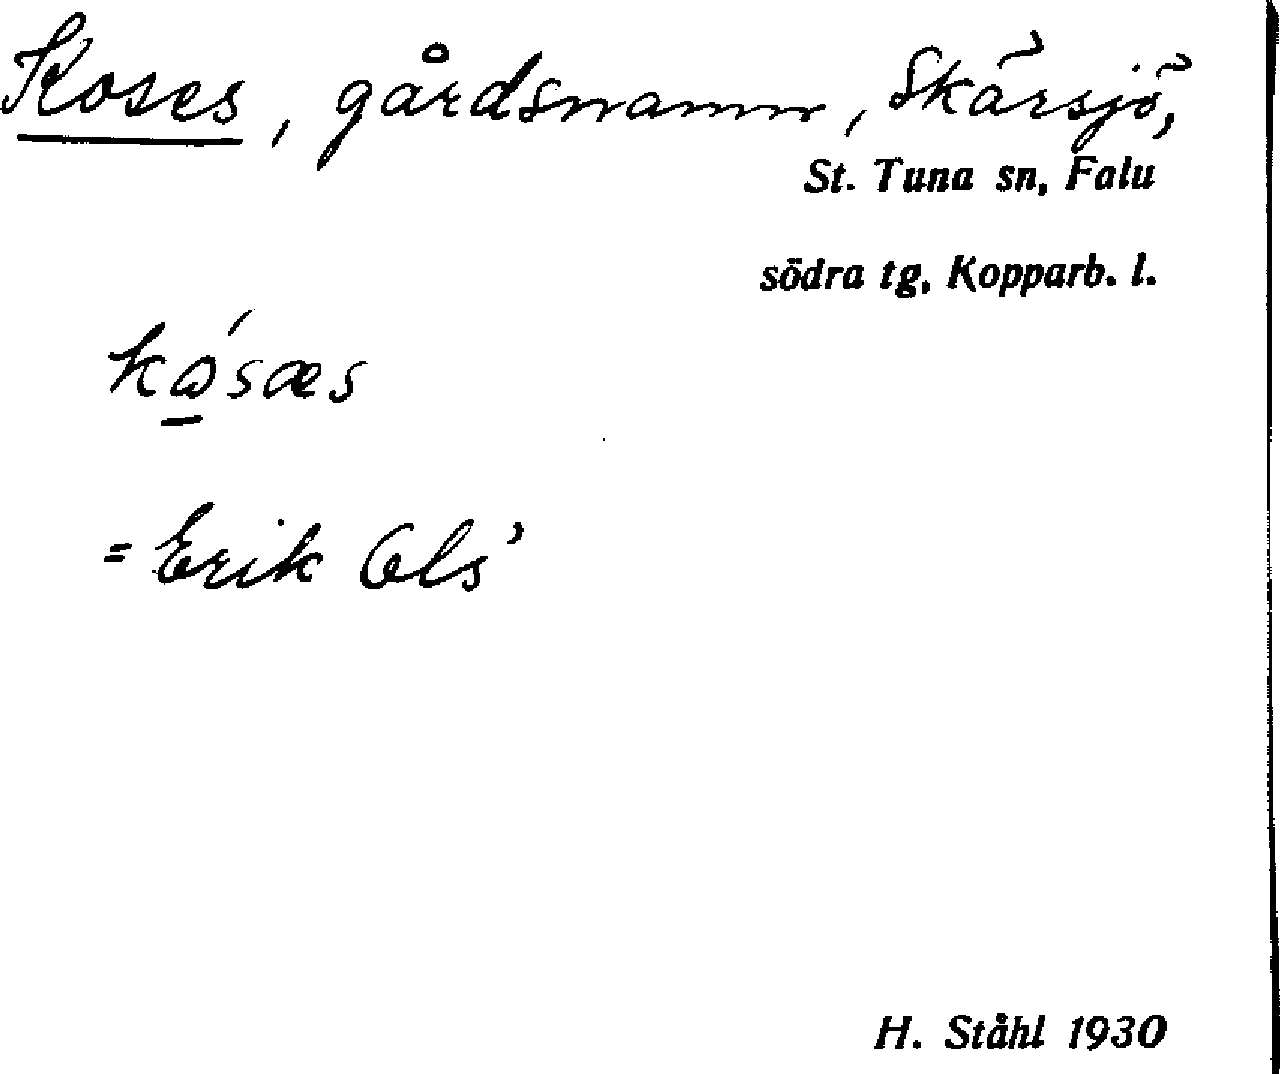 Koses, gårdsnamn, Skärsjö,
St. Tuna sn, Falu
södra tg, Kopparb. l.
= Erik Ols'
H. Ståhl 1930